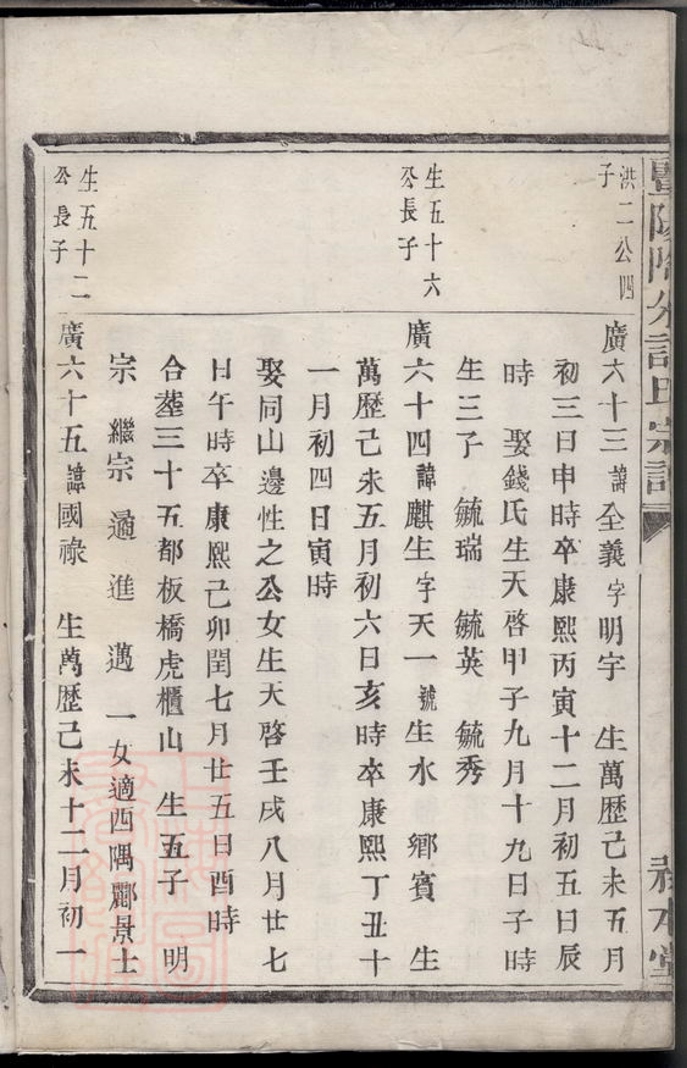 暨陽
許氏宗譜
本堂
洪二公四
子
廣六十三諱全義字明宇 生萬歷己未五月
初三日申時卒康熙丙寅十二月初五日辰
時 娶錢氏生天啓甲子九月十九日子時
生三子 毓瑞 毓英 毓秀
生五十六
公長子
廣六十四諱麒生字天一號生水鄉賓 生
萬歷己未五月初六日亥時卒康熙丁丑十
一月初四日寅時
娶同山邊性之公女生天啓壬戌八月廿七
日午時卒康熙己卯閏七月廿五日酉時
合葬三十五都板橋虎櫃山 生五子 明
宗 繼宗 遹 進 邁 一女適西隅酈景士
生五十二
公長子
廣六十五諱國祿 生萬歷己未十二月初一